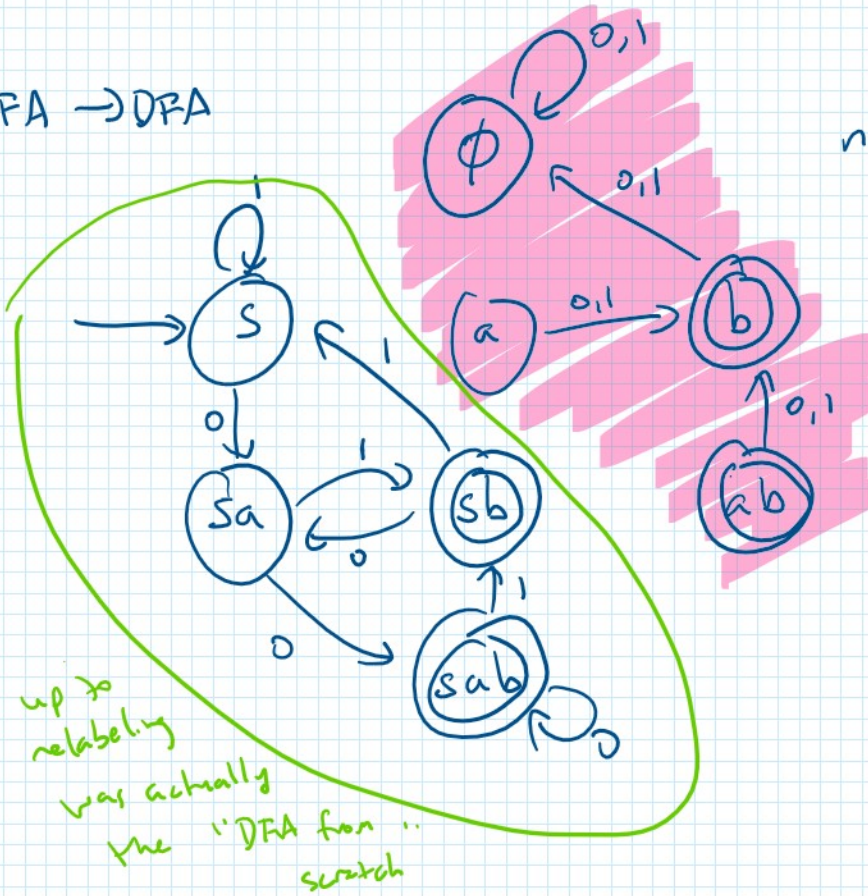 FA → DFA
0,1
ϕ
n
0,1
1
S
a
0,1
b
1
0
0,1
Sa
1
sb
ab
0
1
0
sab
0
up to
relabeling
was actually
the "DFA from
scratch"